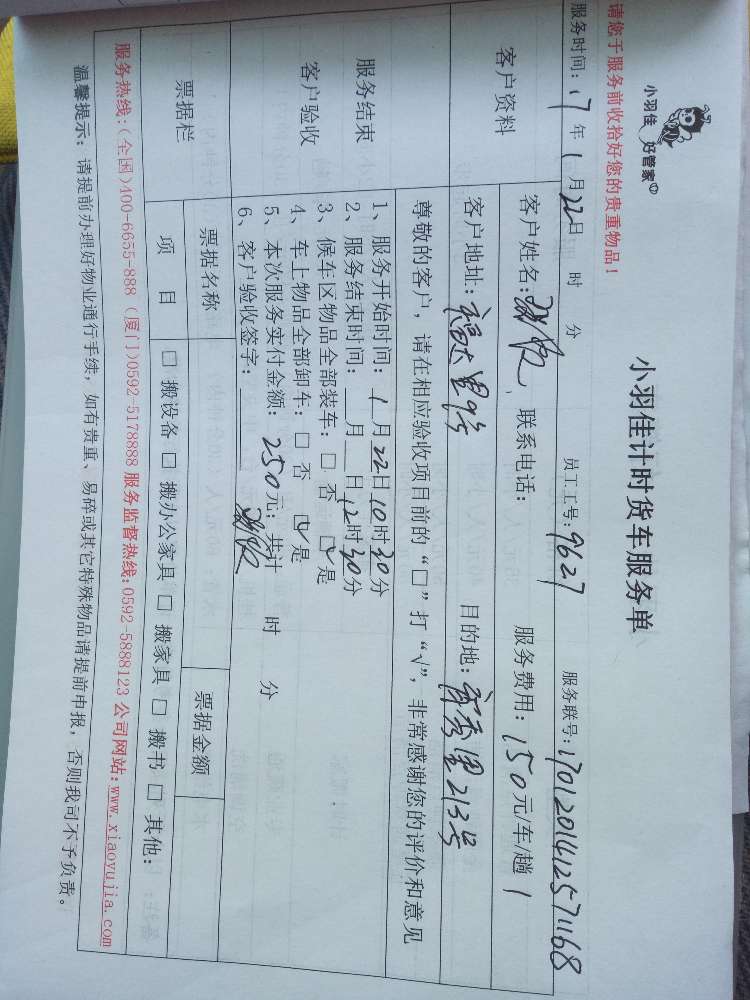 小羽佳 好管家
小羽佳计时货车服务单
请您于服务前收拾好您的贵重物品！
服务时间：17年1月22日 时 分 员工工号：9627 服务联号：1701201412571168
客户资料
客户姓名： 联系电话： 服务费用：150元/车/趟 1
客户地址：福太里9号 目的地：秀里213号
服务结束
客户验收
尊敬的客户，请在相应验收项目前的“□”打“√”，非常感谢您的评价和意见
1、服务开始时间：1月22日10时30分
2、服务结束时间：__月__日12时30分
3、候车区物品全部装车：□ 否 ☑是
4、车上物品全部卸车：□ 否 ☑是
5、本次服务实付金额：250元；共计 时 分
6、客户验收签字：
票据栏
票据名称 票据金额
项 目 □ 搬设备 □ 搬办公家具 □ 搬家具 □ 搬书 □ 其他：
服务热线：(全国)400-6655-888 (厦门)0592-5178888 服务监督热线:0592-5888123 公司网站:www.xiaoyujia.com
温馨提示：请提前办理好物业通行手续，如有贵重、易碎或其它特殊物品请提前申报，否则我司不予负责。